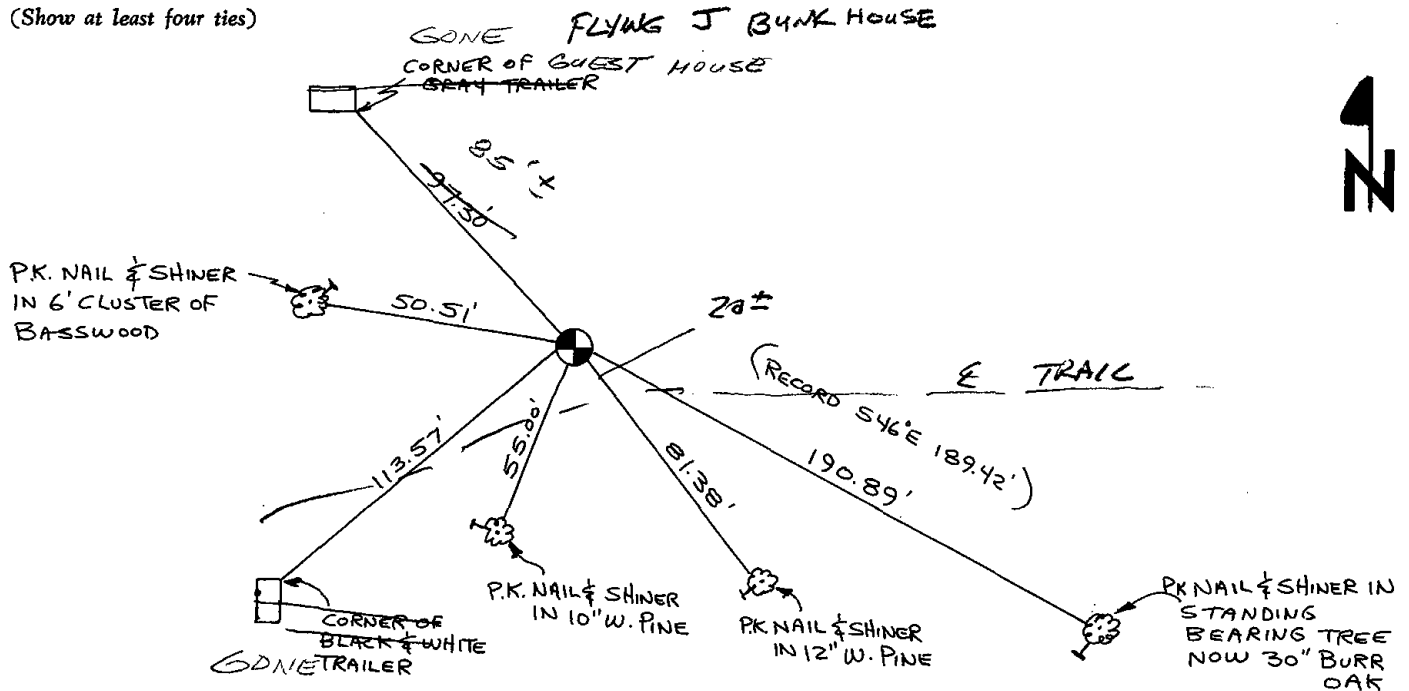 (Show at least four ties)
FLYING J BUNK HOUSE
GONE
CORNER OF GUEST HOUSE
GRAY TRAILER
N
85'±
97.30'
P.K. NAIL & SHINER
IN 6' CLUSTER OF
BASSWOOD
50.51'
20±
℄ TRAIL
(RECORD S46°E 189.42')
113.57'
55.00'
81.38'
190.89'
P.K. NAIL & SHINER
IN 10" W. PINE
P.K. NAIL & SHINER
IN 12" W. PINE
PK NAIL & SHINER IN
STANDING
BEARING TREE
NOW 30" BURR
OAK
CORNER OF
BLACK & WHITE
GONE TRAILER